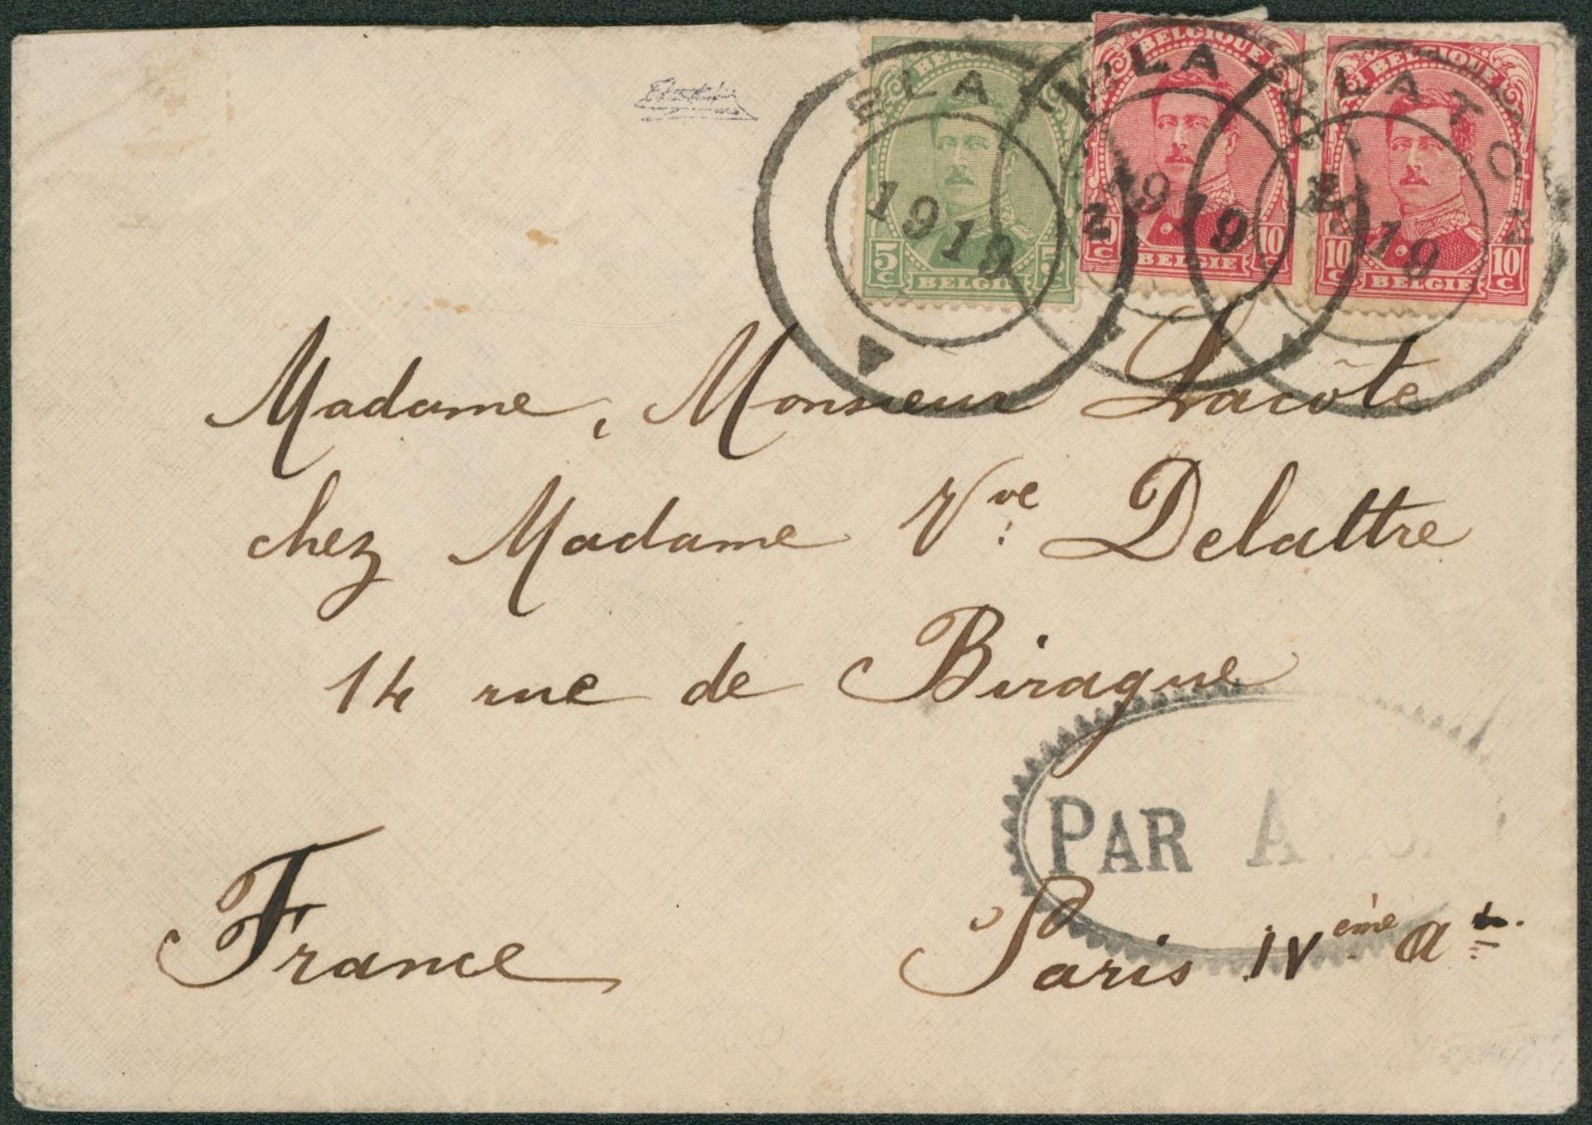 BELGIQUE
5c 5c
BELGIE
BELGIQUE
10c 10c
BELGIE
BELGIQUE
10c 10c
BELGIE
1919
1919
PLATON
1919
Madame, Monsieur Lacôte
chez Madame Vve Delattre
14 rue de Birague
PAR
France
Paris IVème At